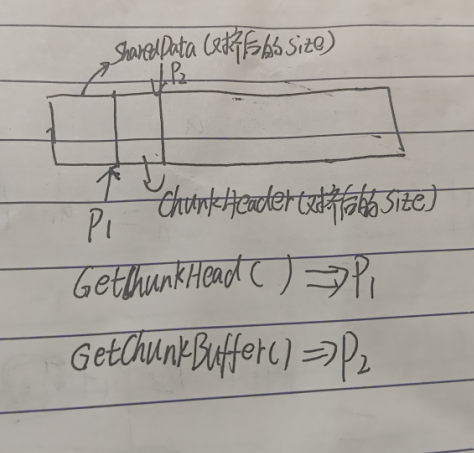 SharedData(对齐后的size)
P2
P1
ChunkHeader(对齐后的size)
GetChunkHead()⇒P1
GetChunkBuffer()⇒P2